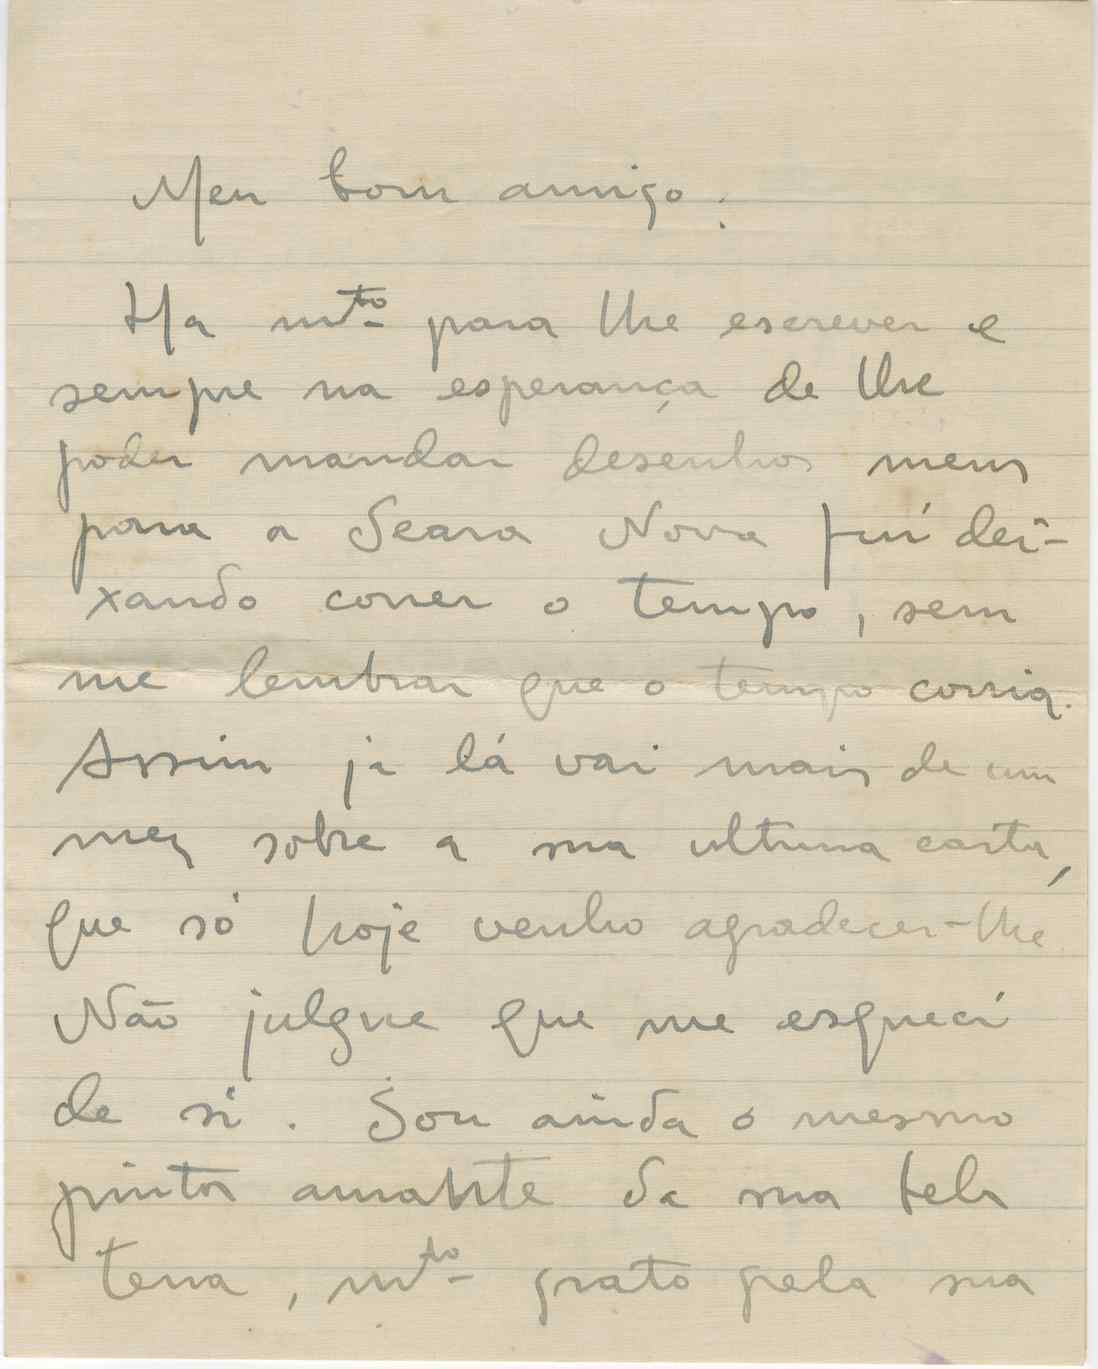 Meu bom amigo:
Ha mto para lhe escrever e
sempre na esperança de lhe
poder mandar desenhos meus
para a Seara Nova fui dei-
xando correr o tempo, sem
me lembrar que o tempo corria.
Assim ja lá vai mais de um
mez sobre a sua ultima carta,
que só hoje venho agradecer-lhe
Não julgue que me esqueci
de si. Sou ainda o mesmo
pintor amante da sua bela
terra, mto grato pela sua